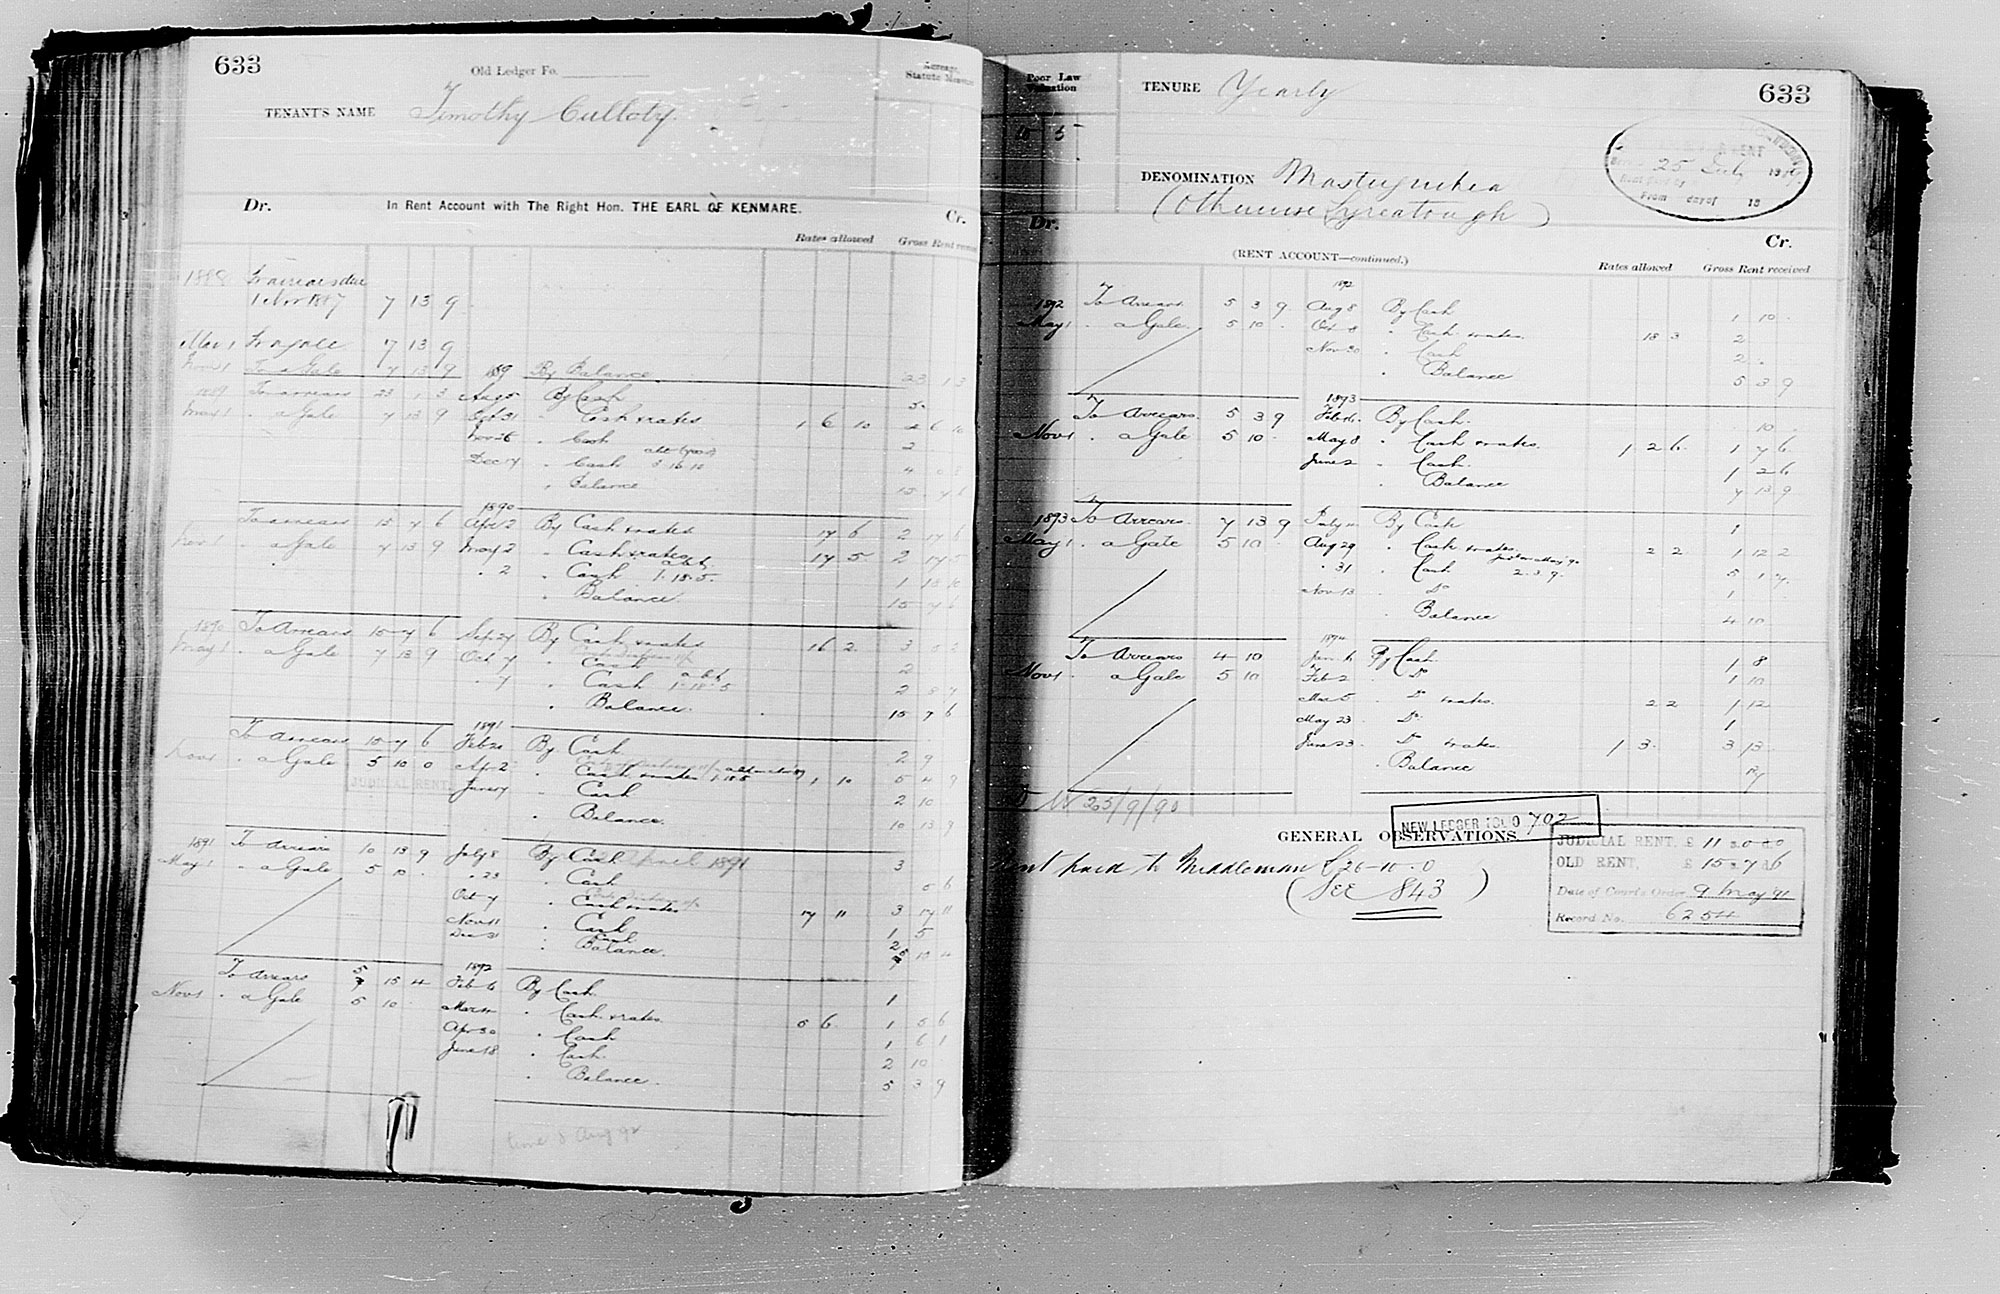 633
Old Ledger Fo.
Acreage, Statute Measure
TENANT'S NAME Timothy Culloty
Dr. In Rent Account with The Right Hon. THE EARL OF KENMARE. Cr.
Rates allowed Gross Rent
1888 To arrears due
1 Nov 1887 7 13 9
May 1 To a gale 7 13 9
Nov 1 To a Gale 7 13 9 1889 By Balance 23 1 3
1889 To arrears 23 1 3 Aug 5 By Cash 5
May 1 . a Gale 7 13 9 Oct 31 " Cash & rates 1 6 10 2 6 10
Nov 26 " Cash 2
Dec 7 " Cash 3 16 10 4
" Balance 15 7 6
1890
To arrears 15 7 6 Apr 2 By Cash & rates 17 6 2 17 6
Nov 1 . a Gale 7 13 9 May 2 " Cash & rates 17 5 2 17 5
" 2 " Cash 1.18.5 1 18 10
" Balance 15 7 6
1890 To Arrears 15 7 6 Sep 27 By Cash & rates 16 2 3 2
May 1 . a Gale 7 13 9 Oct 7 " Cash 2
" 7 " Cash 1.18.5 2 8 7
" Balance 15 7 6
1891
To arrears 15 7 6 Feb 20 By Cash 2 9
Nov 1 . a Gale 5 10 0 Apr 2 " Cash & rates 1.18.5 1 10 5 4 9
JUDICIAL RENT
June 17 " Cash 2 10
" Balance 10 13 9
1891 To Arrears 10 13 9 July 8 By Cash 1891 3
May 1 . a Gale 5 10 " 23 " Cash 5 6
Oct 7 " Cash & rates 17 11 3 17 11
Nov 11 " Cash 1 5
Dec 31 " Cash 2
" Balance 5 15 4
1892
To Arrears 5 15 4 Feb 6 By Cash 1
Nov 1 . a Gale 5 10 Mar 12 " Cash & rates 5 6 1 5 6
Apr 30 " Cash 1 6 1
June 18 " Cash 2 10
" Balance 5 3 9
8 Aug 92
Poor Law Valuation
10 5
TENURE Yearly
633
25 July 1889
From day of 18
DENOMINATION Mastuguihea
(Otherwise Lyreatough)
Dr. Cr.
(RENT ACCOUNT—continued.)
Rates allowed Gross Rent received
1892
1892 To Arrears 5 3 9 Aug 8 By Cash 1 10
May 1 . a Gale 5 10 Oct 8 " Cash & rates 18 3 2
Nov 30 " Cash 2
" Balance 5 3 9
1893
To Arrears 5 3 9 Feb 16 By Cash 10
Nov 1 . a Gale 5 10 May 8 " Cash & rates 1 2 6 1 7 6
June 2 " Cash 1 2 6
" Balance 7 13 9
1893 To Arrears 7 13 9 July 11 By Cash 1
May 1 . a Gale 5 10 Aug 29 " Cash & rates 2 2 1 12 2
" 31 " Cash 2.3.9 5 1 7
Nov 13 " Do 1
Balance 4 10
1894
To Arrears 4 10 Jan 6 By Cash 1 8
Nov 1 . a Gale 5 10 Feb 2 " Do 1 10
Mar 5 " Do & rates 2 2 1 12
May 23 " Do 1
June 23 " Do & rates 1 3 3 13
" Balance 17
25/9/90
NEW LEDGER FOLIO 702
GENERAL OBSERVATIONS
Rent paid to Middleman £26-10-0
(SEE 843)
JUDICIAL RENT, £ 11 0 0
OLD RENT, £ 15 7 6
Date of Court's Order 9 May 91
Record No. 6254